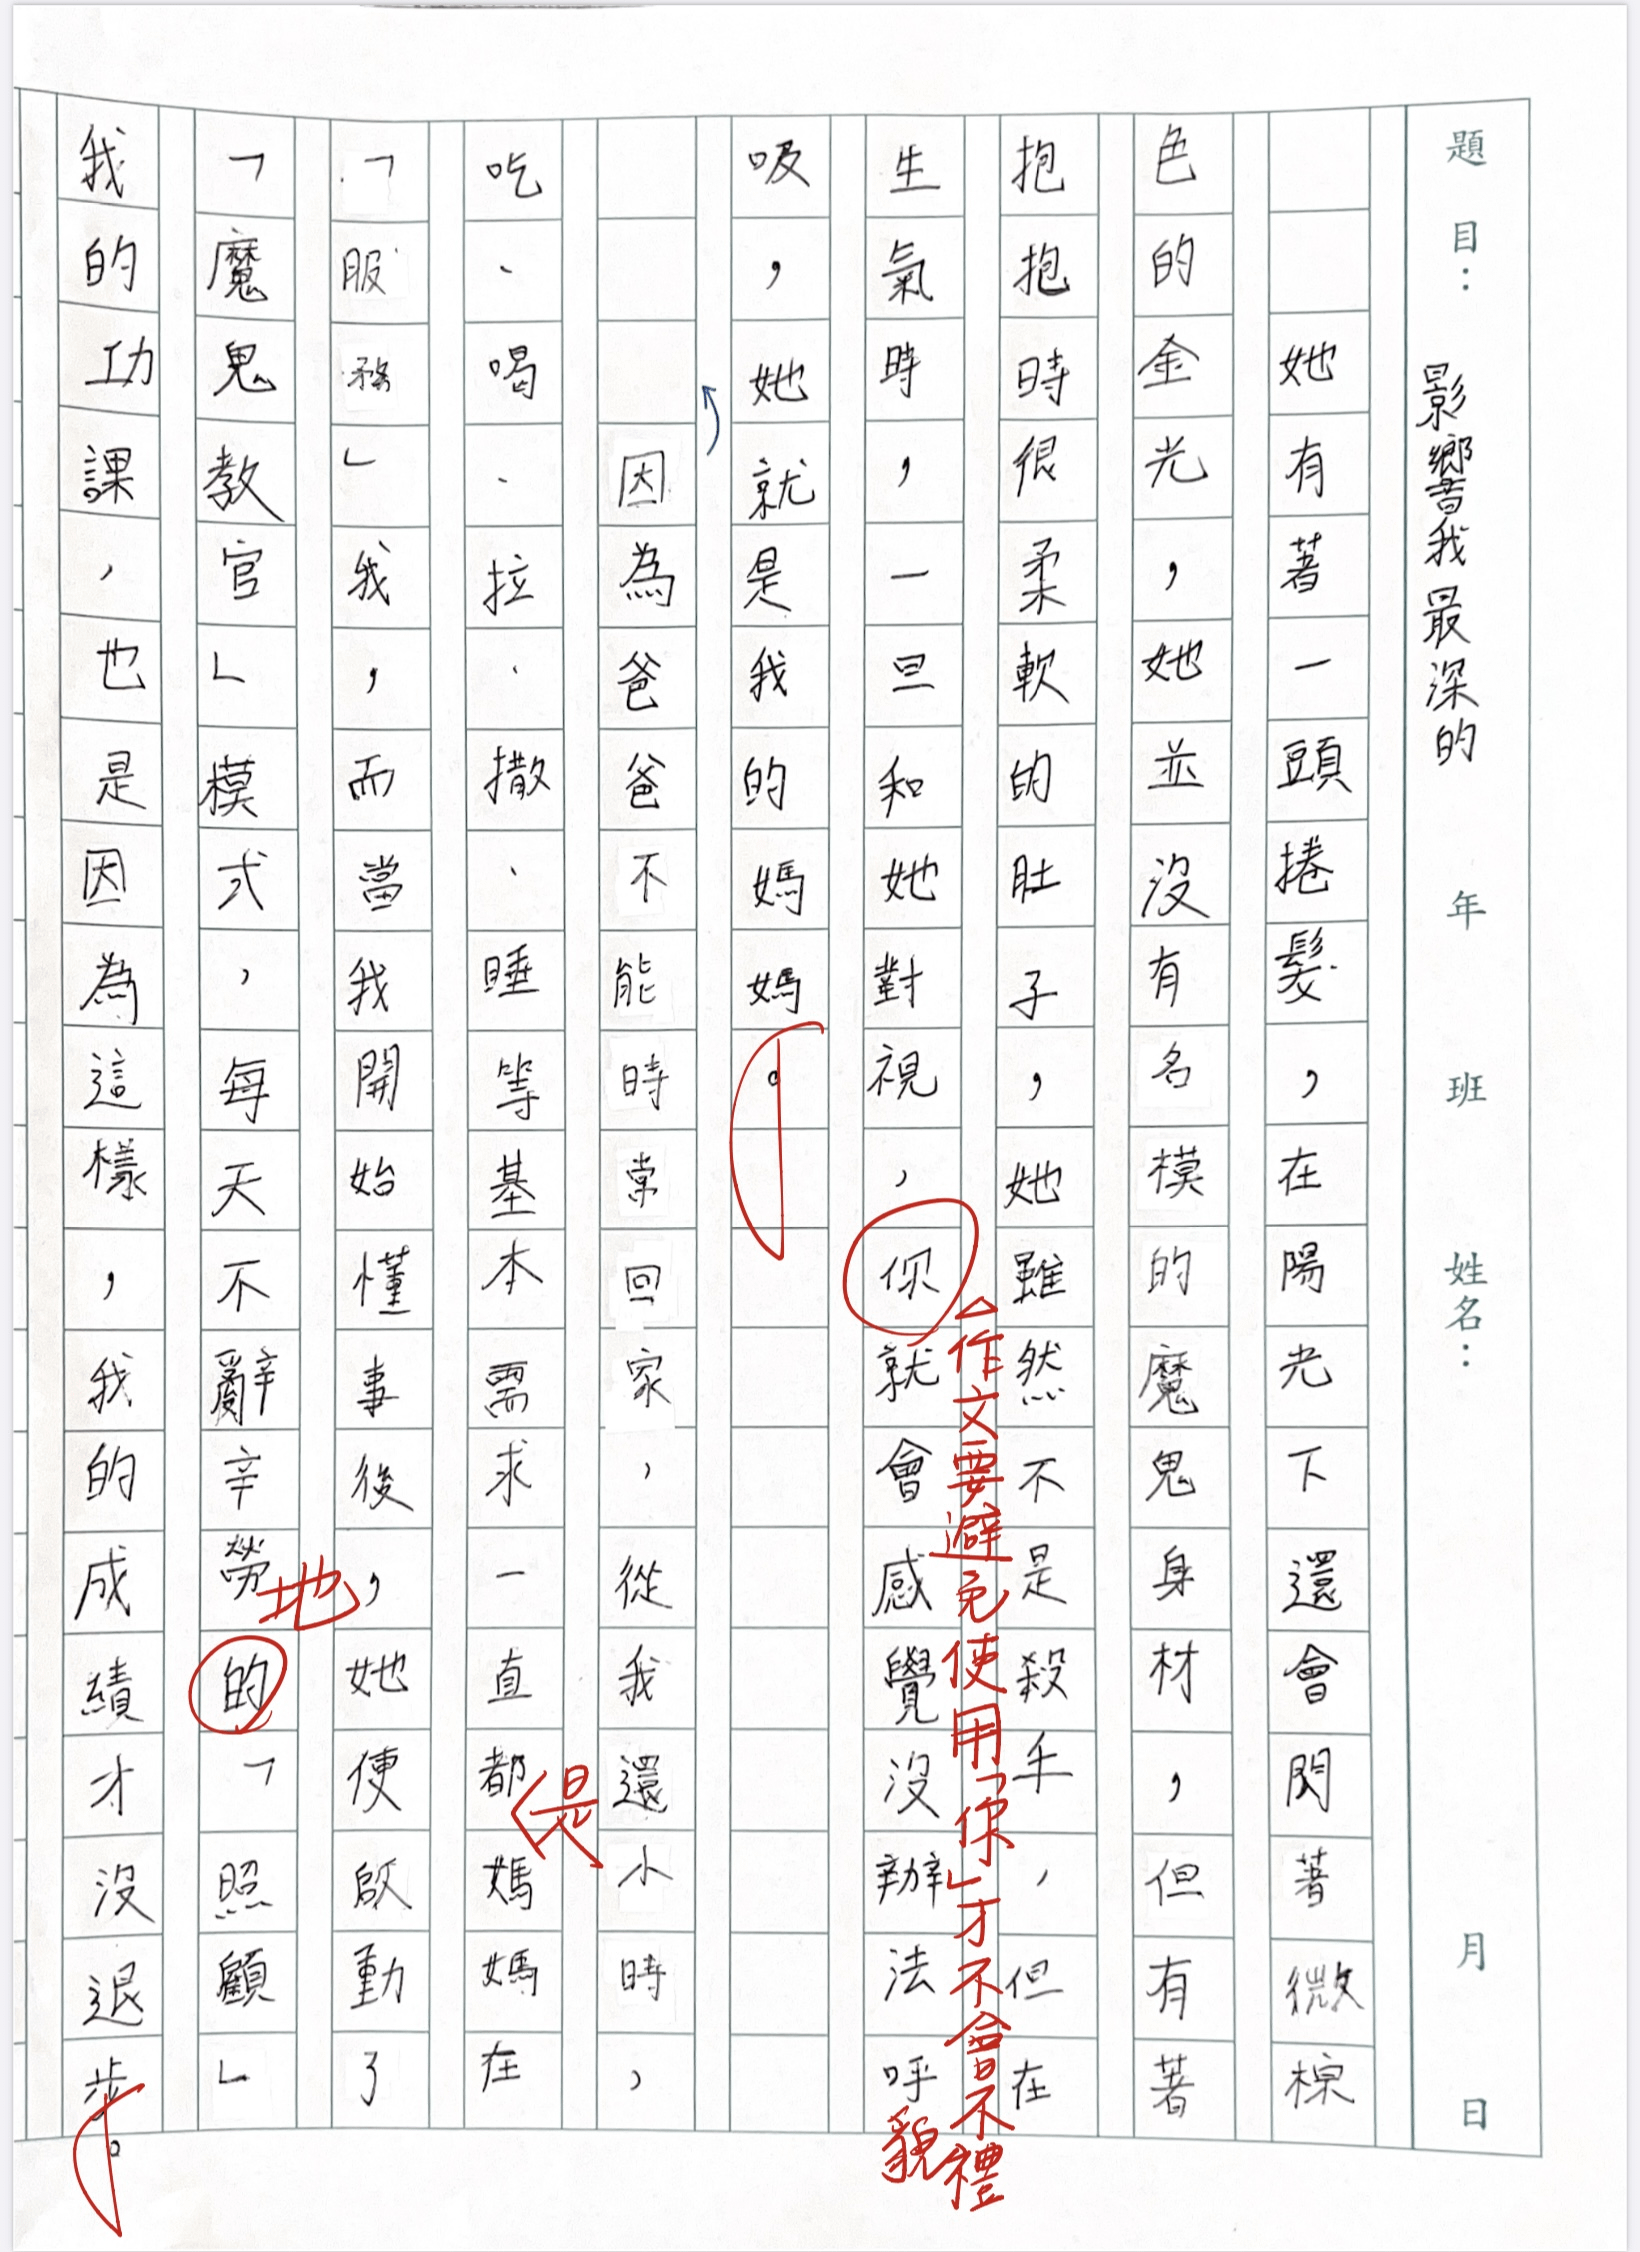 題目：影響我最深的 年 班 姓名： 月 日
她有著一頭捲髮，在陽光下還會閃著微棕
色的金光，她並沒有名模的魔鬼身材，但有著
抱抱時很柔軟的肚子，她雖然不是殺手，但在
△作文要避免使用「你」才不會不禮貌
生氣時，一旦和她對視，你就會感覺沒辦法呼
吸，她就是我的媽媽。
因為爸爸不能時常回家，從我還小時，
是
吃、喝、拉、撒、睡等基本需求一直都媽媽在
「服務」我，而當我開始懂事後，她便啟動了
地
「魔鬼教官」模式，每天不辭辛勞的「照顧」
我的功課，也是因為這樣，我的成績才沒退步。